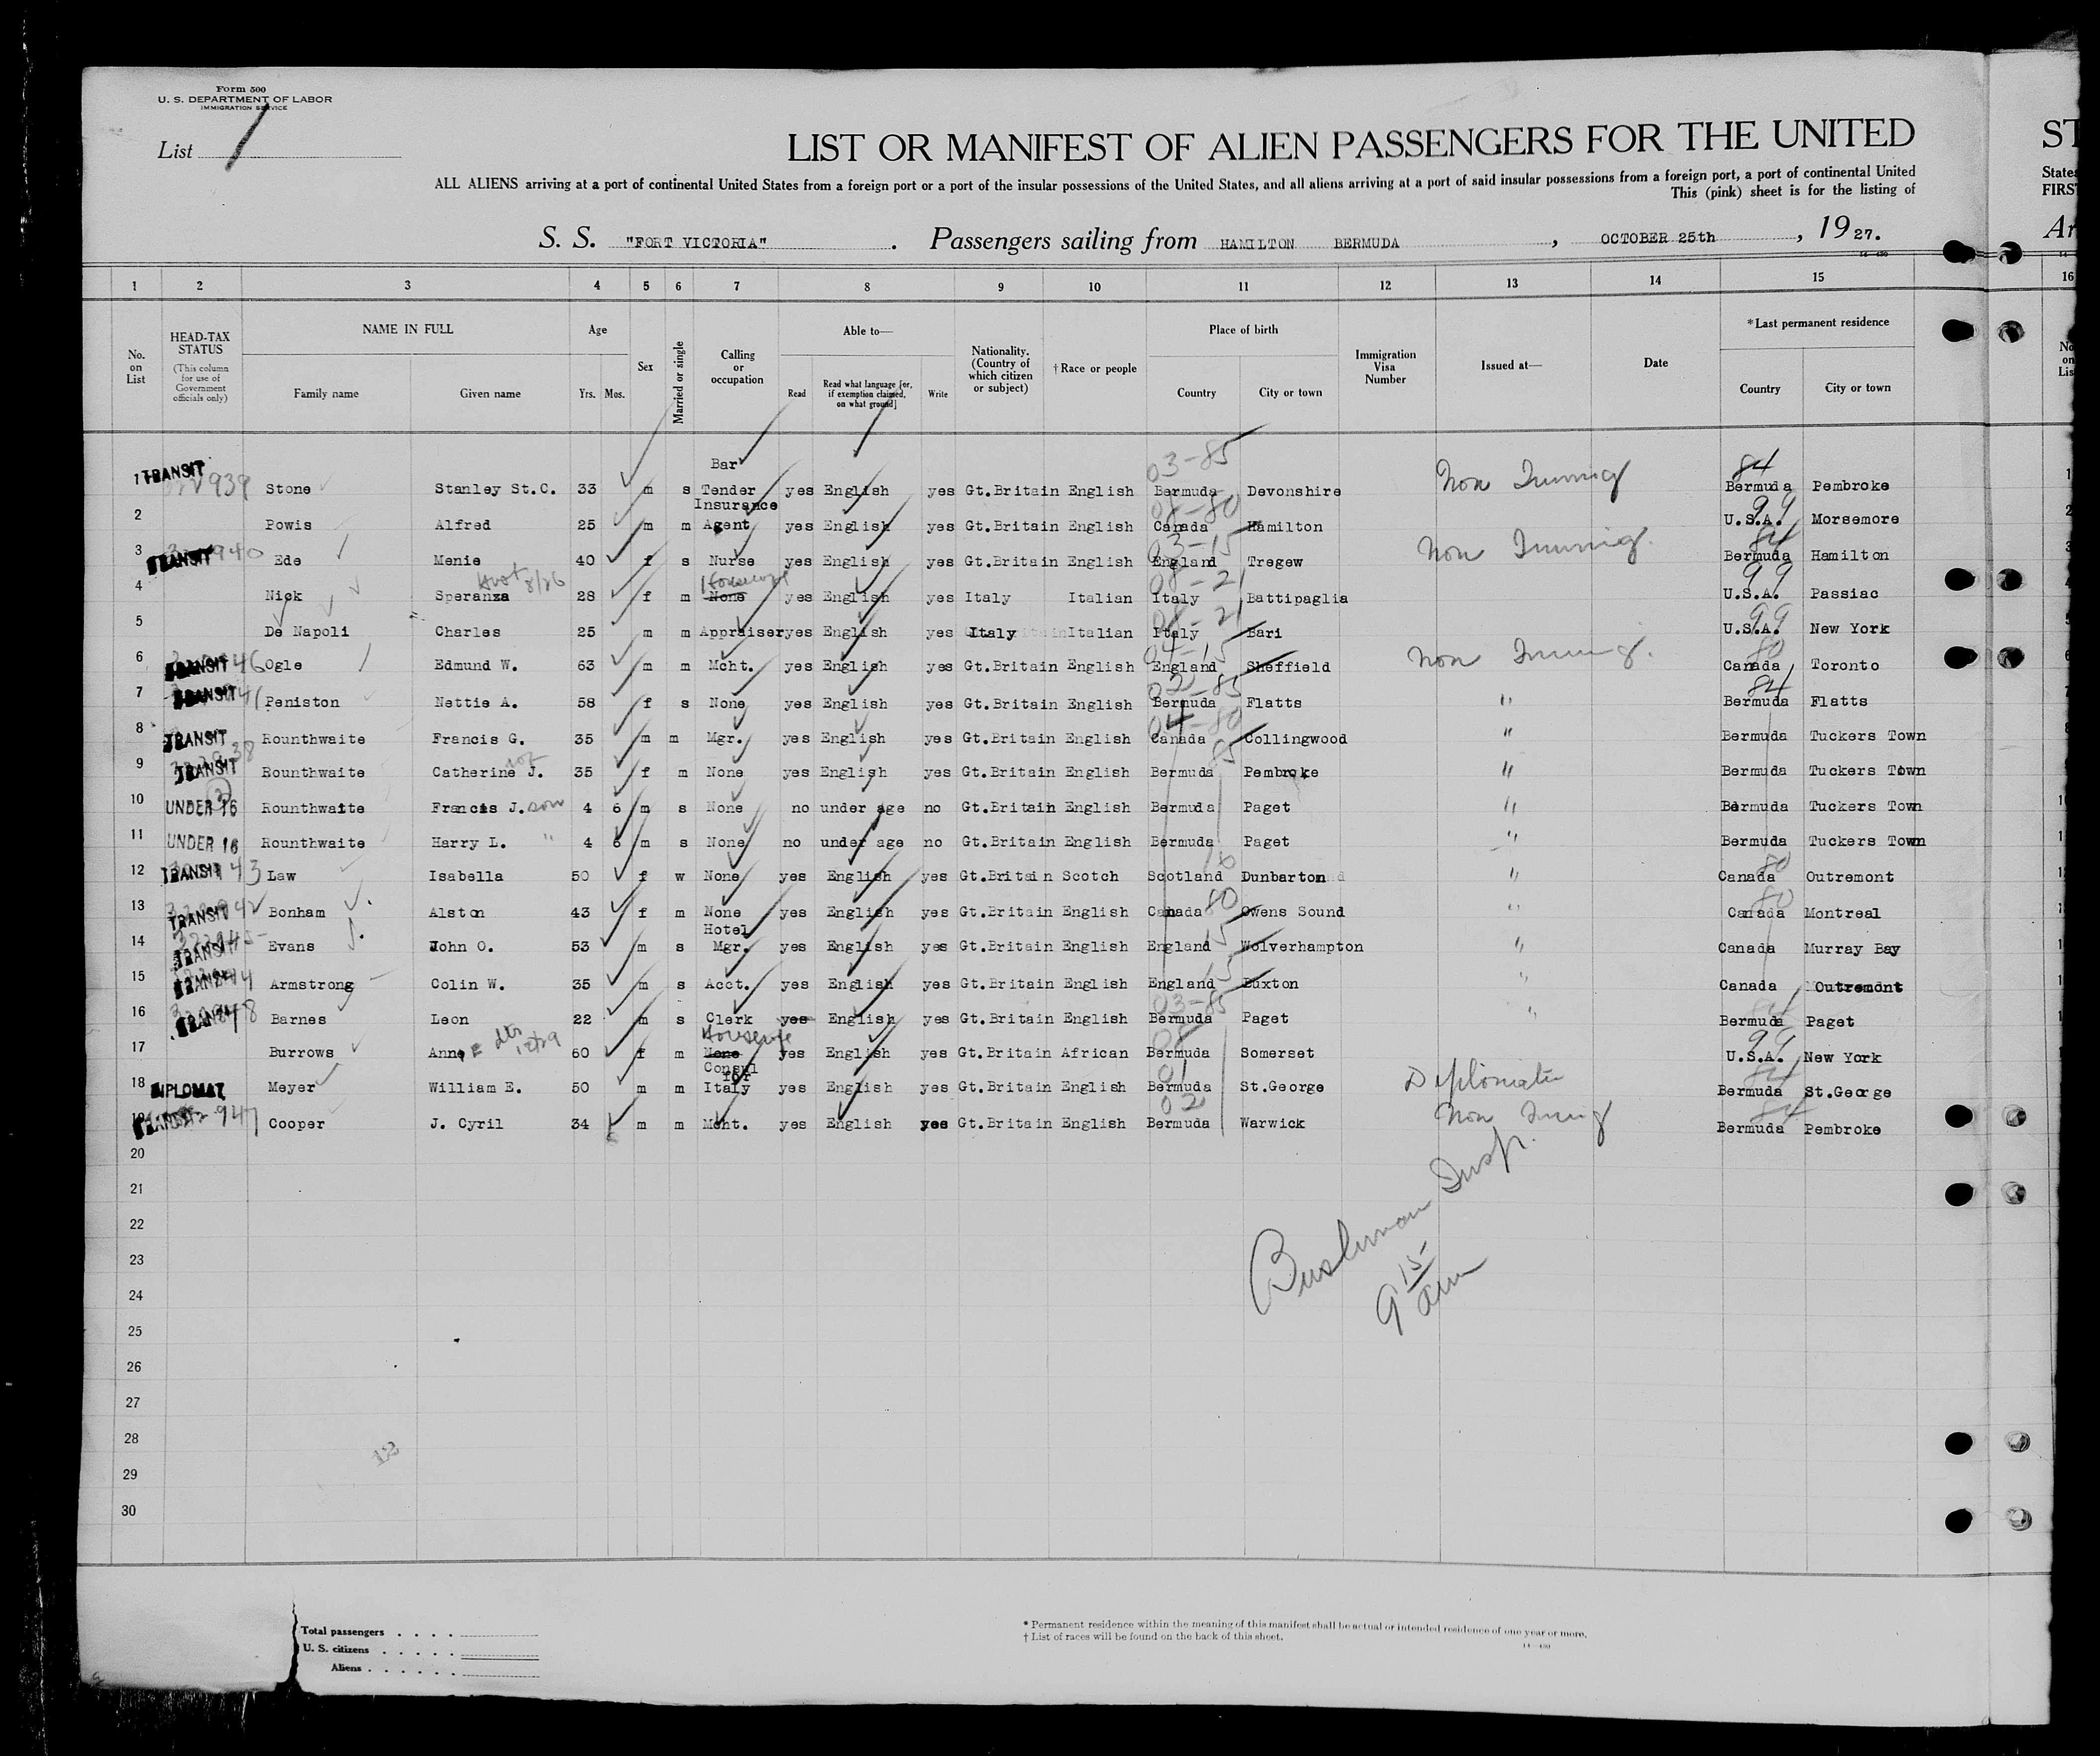 Form 500
U. S. DEPARTMENT OF LABOR
IMMIGRATION SERVICE
List 1
LIST OR MANIFEST OF ALIEN PASSENGERS FOR THE UNITED ST
ALL ALIENS arriving at a port of continental United States from a foreign port or a port of the insular possessions of the United States, and all aliens arriving at a port of said insular possessions from a foreign port, a port of continental United States
This (pink) sheet is for the listing of FIRST
S. S. "FORT VICTORIA" . Passengers sailing from HAMILTON BERMUDA , OCTOBER 25th , 1927. Ar
1 2 3 4 5 6 7 8 9 10 11 12 13 14 15 16
No. on List
HEAD-TAX STATUS (This column for use of Government officials only)
NAME IN FULL
Family name
Given name
Age
Yrs. Mos.
Sex
Married or single
Calling or occupation
Able to—
Read
Read what language [or, if exemption claimed, on what ground]
Write
Nationality. (Country of which citizen or subject)
†Race or people
Place of birth
Country
City or town
Immigration Visa Number
Issued at—
Date
*Last permanent residence
Country
City or town
1 TRANSIT 939 Stone Stanley St.C. 33 m s Bar Tender yes English yes Gt.Britain English 03-85 Bermuda Devonshire Non Immig 84 Bermuda Pembroke
2 Powis Alfred 25 m m Insurance Agent yes English yes Gt.Britain English 08-80 Canada Hamilton 99 U.S.A. Morsemore
3 TRANSIT 940 Ede Menie 40 f s Nurse yes English yes Gt.Britain English 03-15 England Tregew Non Immig. 84 Bermuda Hamilton
4 Nick Speranza 8/26 28 f m None Housewife yes English yes Italy Italian 08-21 Italy Battipaglia 99 U.S.A. Passiac
5 De Napoli Charles 25 m m Appraiser yes English yes Italy Italian 08-21 Italy Bari 99 U.S.A. New York
6 TRANSIT 946 Ogle Edmund W. 63 m m Mcht. yes English yes Gt.Britain English 04-15 England Sheffield Non Immig. 80 Canada Toronto
7 TRANSIT 941 Peniston Nettie A. 58 f s None yes English yes Gt.Britain English 02-85 Bermuda Flatts " 84 Bermuda Flatts
8 TRANSIT Rounthwaite Francis G. 35 m m Mgr. yes English yes Gt.Britain English 04-80 Canada Collingwood " Bermuda Tuckers Town
9 TRANSIT 38 Rounthwaite Catherine J. 35 f m None yes English yes Gt.Britain English 85 Bermuda Pembroke " Bermuda Tuckers Town
10 UNDER 16 Rounthwaite Francis J. son 4 6 m s None no under age no Gt.Britain English Bermuda Paget " Bermuda Tuckers Town
11 UNDER 16 Rounthwaite Harry L. " 4 6 m s None no under age no Gt.Britain English Bermuda Paget " Bermuda Tuckers Town
12 TRANSIT 943 Law Isabella 50 f w None yes English yes Gt.Britain Scotch Scotland Dunbarton " 80 Canada Outremont
13 TRANSIT 942 Bonham Alston 43 f m None yes English yes Gt.Britain English Canada 80 Owens Sound " 80 Canada Montreal
14 TRANSIT 945 Evans John O. 53 m s Hotel Mgr. yes English yes Gt.Britain English England 15 Wolverhampton " Canada Murray Bay
15 TRANSIT 944 Armstrong Colin W. 35 m s Acct. yes English yes Gt.Britain English England 15 Buxton " Canada Outremont
16 TRANSIT 948 Barnes Leon 22 m s Clerk yes English yes Gt.Britain English 03-85 Bermuda Paget " 84 Bermuda Paget
17 Burrows Anne 12/29 60 f m None Housewife yes English yes Gt.Britain African 08 Bermuda Somerset 99 U.S.A. New York
18 DIPLOMAT Meyer William E. 50 m m Consul for Italy yes English yes Gt.Britain English 01 Bermuda St.George Diplomatic 84 Bermuda St.George
19 TRANSIT 947 Cooper J. Cyril 34 m m Mcht. yes English yes Gt.Britain English 02 Bermuda Warwick Non Immig 84 Bermuda Pembroke
20
21
22
23
24
25
26
27
28
29
30
Bushman Insp.
9 15 am
12
Total passengers
U. S. citizens
Aliens
* Permanent residence within the meaning of this manifest shall be actual or intended residence of one year or more.
† List of races will be found on the back of this sheet.
14—480